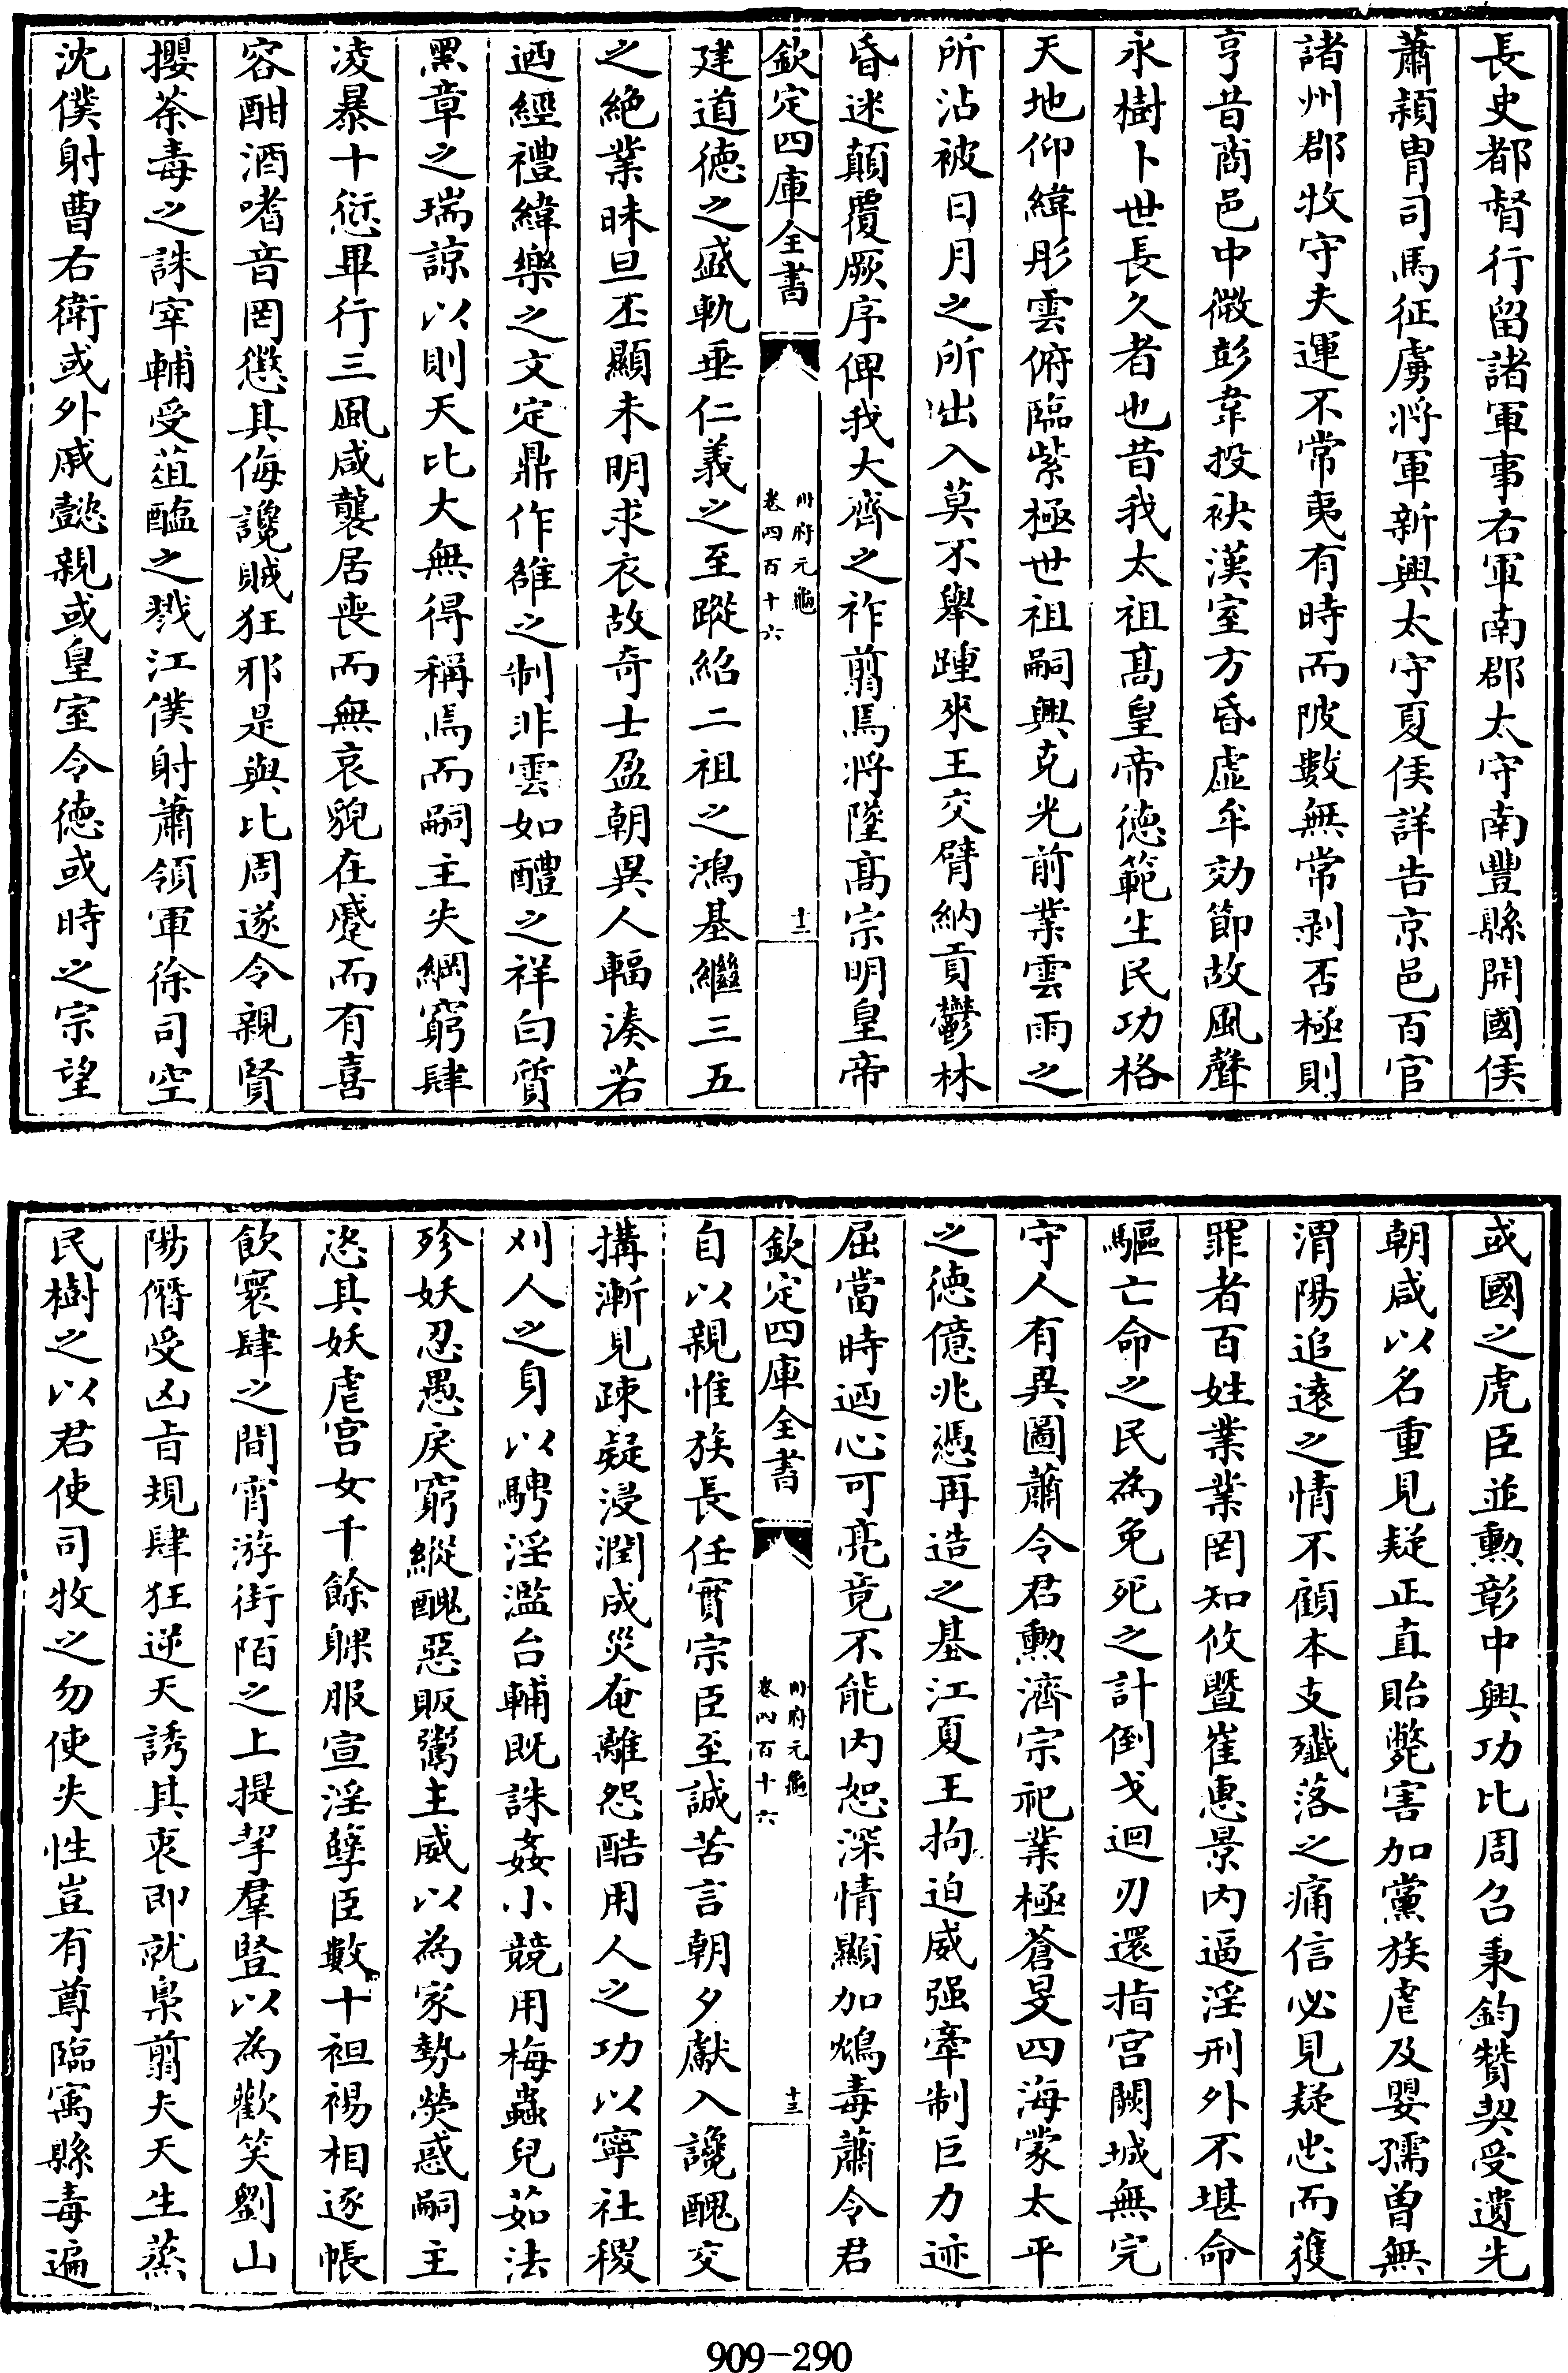 長史都督行留諸軍事右軍南郡太守南豐縣開國侯
蕭穎胄司馬征虜將軍新興太守夏侯詳告京邑百官
諸州郡牧守夫運不常夷有時而陂數無常剥否極則
亨昔商邑中微彭韋投袂漢室方昏虛牟効節故風聲
永樹卜世長久者也昔我太祖髙皇帝德範生民功格
天地仰緯彤雲俯臨紫極世祖嗣興克光前業雲雨之
所沾被日月之所出入莫不舉踵來王交臂納貢鬱林
昏迷顛覆厥序俾我大齊之祚翦焉將墜髙宗明皇帝
欽定四庫全書
册府元龜
卷四百十六
十二
建道德之盛軌垂仁義之至蹤紹二祖之鴻基繼三五
之絶業昧旦丕顯未明求衣故奇士盈朝異人輻湊若
迺經禮緯樂之文定鼎作雒之制非雲如醴之祥白質
黑章之瑞諒以則天比大無得稱焉而嗣主失綱窮肆
凌暴十愆畢行三風咸襲居喪而無哀貌在慼而有喜
容酣酒嗜音罔懲其侮讒賊狂邪是與比周遂令親賢
攖荼毒之誅宰輔受葅醢之戮江僕射蕭領軍徐司空
沈僕射曹右衛或外戚懿親或皇室令德或時之宗望
或國之虎臣並勲彰中興功比周召秉鈞贊契受遺先
朝咸以名重見疑正直貽斃害加黨族虐及嬰孺曽無
渭陽追遠之情不顧本支殲落之痛信必見疑忠而獲
罪者百姓業業罔知攸暨崔惠景内逼淫刑外不堪命
驅亡命之民為免死之計倒戈迴刃還指宫闕城無完
守人有異圖蕭令君勲濟宗祀業極蒼旻四海蒙太平
之德億兆憑再造之基江夏王拘迫威强牽制巨力迹
屈當時迺心可亮竟不能内恕深情顯加鴆毒蕭令君
欽定四庫全書
册府元龜
卷四百十六
十三
自以親惟族長任實宗臣至誠苦言朝夕獻入讒醜交
搆漸見疎疑浸潤成災奄離怨酷用人之功以寧社稷
刈人之身以騁淫濫台輔既誅姦小競用梅蟲兒茹法
珍妖忍愚戾窮縱醜惡販鬻主威以為家勢熒惑嗣主
恣其妖虐宫女千餘躶服宣淫孽臣數十袒裼相逐帳
飲寰肆之間宵游街陌之上提挈羣豎以為歡笑劉山
陽僭受凶旨規肆狂逆天誘其衷即就梟翦夫天生蒸
民樹之以君使司牧之勿使失性豈有尊臨寓縣毒遍
909-290